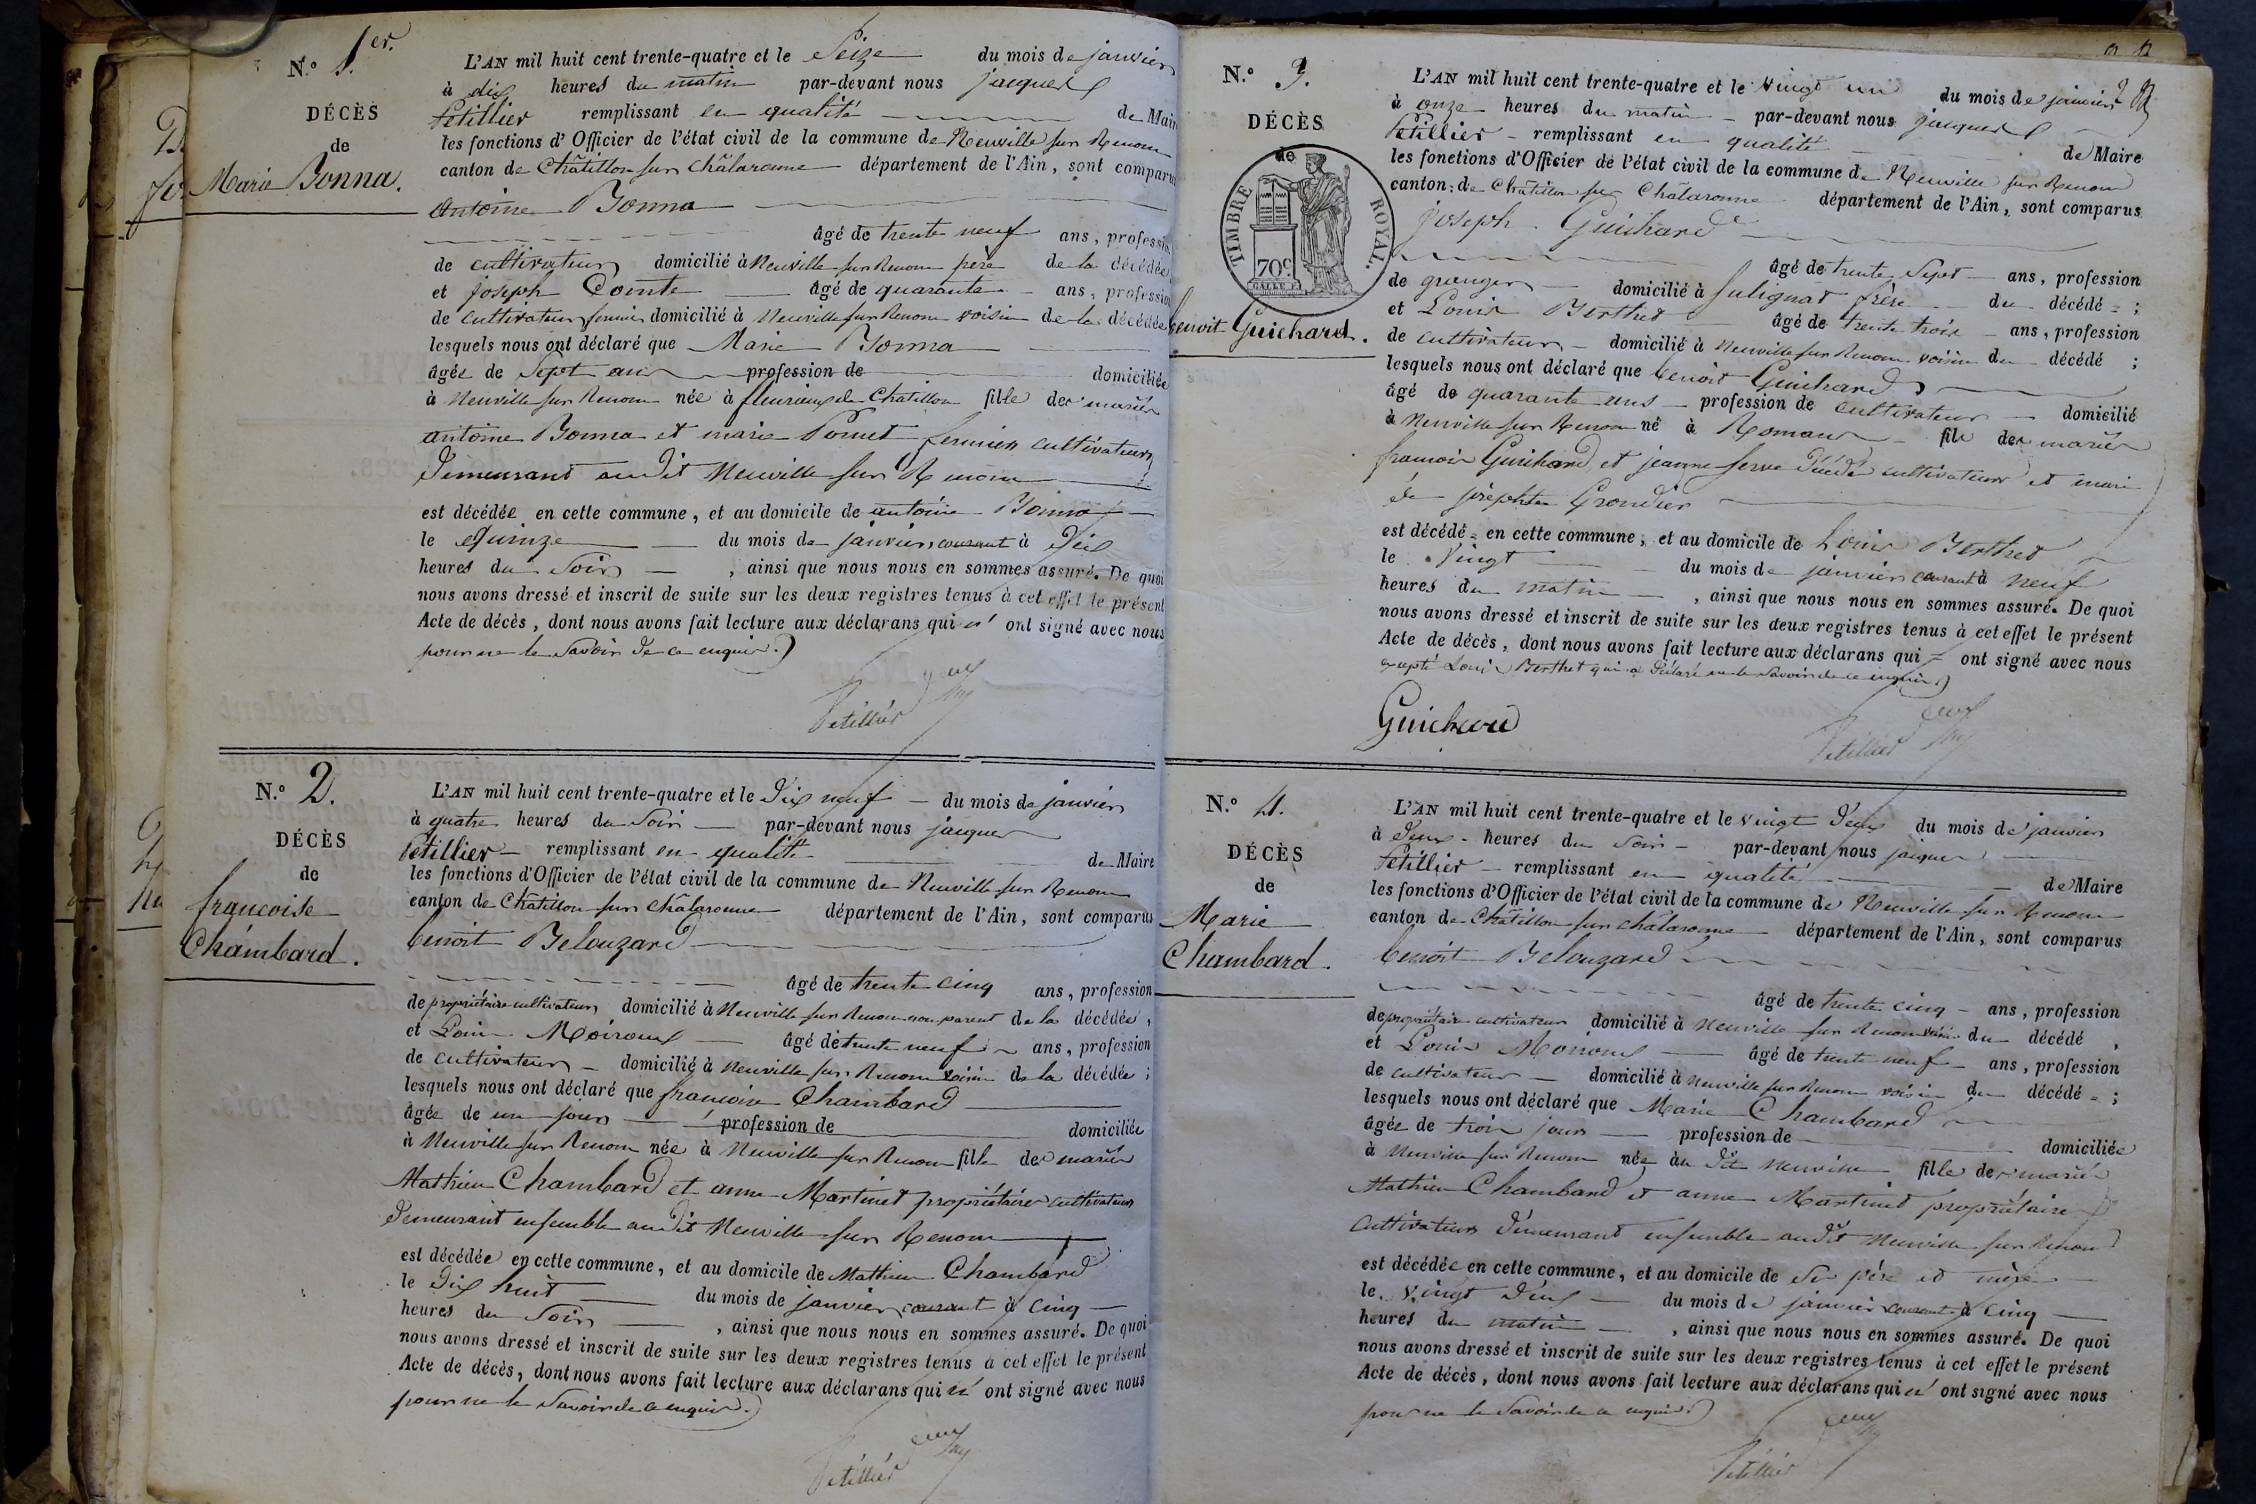 N.° 1.er
DÉCÈS
de
Marie Bonna.
L'AN mil huit cent trente-quatre et le Seize du mois de janvier
à dix heures du matin par-devant nous jacques
Petillier remplissant en qualité de Maire
les fonctions d'Officier de l'état civil de la commune de Neuville sur Renom
canton de Châtillon sur Châlaronne département de l'Ain, sont comparus
Antoine Bonna
âgé de trente neuf ans, profession
de cultivateur domicilié à Neuville sur Renom père de la décédée
et joseph Comte âgé de quarante ans, profession
de cultivateur fermier domicilié à Neuville sur Renom voisin de la décédée
lesquels nous ont déclaré que Marie Bonna
âgée de Sept ans profession de domiciliée
à Neuville sur Renom née à fleurieux de Chatillon fille des mariés
antoine Bonna et marie Pomet fermiers cultivateurs
demeurant audit Neuville sur Renom
est décédée en cette commune, et au domicile de antoine Bonna
le Quinze du mois de janvier courant à dix
heures du Soir, ainsi que nous nous en sommes assuré. De quoi
nous avons dressé et inscrit de suite sur les deux registres tenus à cet effet le présent
Acte de décès, dont nous avons fait lecture aux déclarans qui n' ont signé avec nous
pour ne le Savoir de ce enquis.
Petillier
N.° 2.
DÉCÈS
de
françoise
Chambard.
L'AN mil huit cent trente-quatre et le dix neuf du mois de janvier
à quatre heures du Soir par-devant nous jacques
Petillier remplissant en qualité de Maire
les fonctions d'Officier de l'état civil de la commune de Neuville sur Renom
canton de Châtillon sur Châlaronne département de l'Ain, sont comparus
benoit Belouzard
âgé de trente cinq ans, profession
de propriétaire cultivateur domicilié à Neuville sur Renom non parent de la décédée,
et Louis Moiroux âgé de trente neuf ans, profession
de cultivateur domicilié à Neuville sur Renom voisin de la décédée;
lesquels nous ont déclaré que françoise Chambard
âgée de un jour profession de domiciliée
à Neuville sur Renom née à Neuville sur Renom fille des mariés
Mathieu Chambard et anne Martinet propriétaires cultivateurs
demeurant ensemble audit Neuville sur Renom
est décédée en cette commune, et au domicile de Mathieu Chambard
le dix huit du mois de janvier courant à cinq
heures du Soir, ainsi que nous nous en sommes assuré. De quoi
nous avons dressé et inscrit de suite sur les deux registres tenus à cet effet le présent
Acte de décès, dont nous avons fait lecture aux déclarans qui n' ont signé avec nous
pour ne le Savoir de ce enquis.
Petillier
N.° 3.
DÉCÈS
de
TIMBRE ROYAL.
70c
benoit Guichard.
L'AN mil huit cent trente-quatre et le vingt un du mois de janvier
à onze heures du matin par-devant nous jacques
Petillier remplissant en qualité de Maire
les fonctions d'Officier de l'état civil de la commune de Neuville sur Renom
canton de Châtillon sur Châlaronne département de l'Ain, sont comparus
joseph Guichard
âgé de trente Sept ans, profession
de granger domicilié à Sulignat frère du décédé;
et Louis Berthet âgé de trente trois ans, profession
de cultivateur domicilié à Neuville sur Renom voisin du décédé;
lesquels nous ont déclaré que benoit Guichard
âgé de quarante ans profession de cultivateur domicilié
à Neuville sur Renom né à Romans fils des mariés
francois Guichard et jeanne ferre décédés cultivateurs et mari
de josephte Grondier
est décédé en cette commune, et au domicile de Louis Berthet
le vingt du mois de janvier courant à neuf
heures du matin, ainsi que nous nous en sommes assuré. De quoi
nous avons dressé et inscrit de suite sur les deux registres tenus à cet effet le présent
Acte de décès, dont nous avons fait lecture aux déclarans qui ont signé avec nous
excepté Louis Berthet qui a déclaré ne le Savoir de ce enquis
Guichard
Petillier
N.° 4.
DÉCÈS
de
Marie
Chambard.
L'AN mil huit cent trente-quatre et le vingt deux du mois de janvier
à deux heures du Soir par-devant nous jacques
Petillier remplissant en qualité de Maire
les fonctions d'Officier de l'état civil de la commune de Neuville sur Renom
canton de Châtillon sur Châlaronne département de l'Ain, sont comparus
benoit Belouzard
âgé de trente cinq ans, profession
de propriétaire cultivateur domicilié à Neuville sur Renom voisin du décédé,
et Louis Moiroux âgé de trente neuf ans, profession
de cultivateur domicilié à Neuville sur Renom voisin du décédé;
lesquels nous ont déclaré que Marie Chambard
âgée de trois jours profession de domiciliée
à Neuville sur Renom née au dit Neuville fille des mariés
Mathieu Chambard et anne Martinet propriétaires
Cultivateurs demeurant ensemble audit Neuville sur Renom
est décédée en cette commune, et au domicile de Ses père et mère
le vingt deux du mois de janvier courant à cinq
heures du matin, ainsi que nous nous en sommes assuré. De quoi
nous avons dressé et inscrit de suite sur les deux registres tenus à cet effet le présent
Acte de décès, dont nous avons fait lecture aux déclarans qui n' ont signé avec nous
pour ne le Savoir de ce enquis.
Petillier